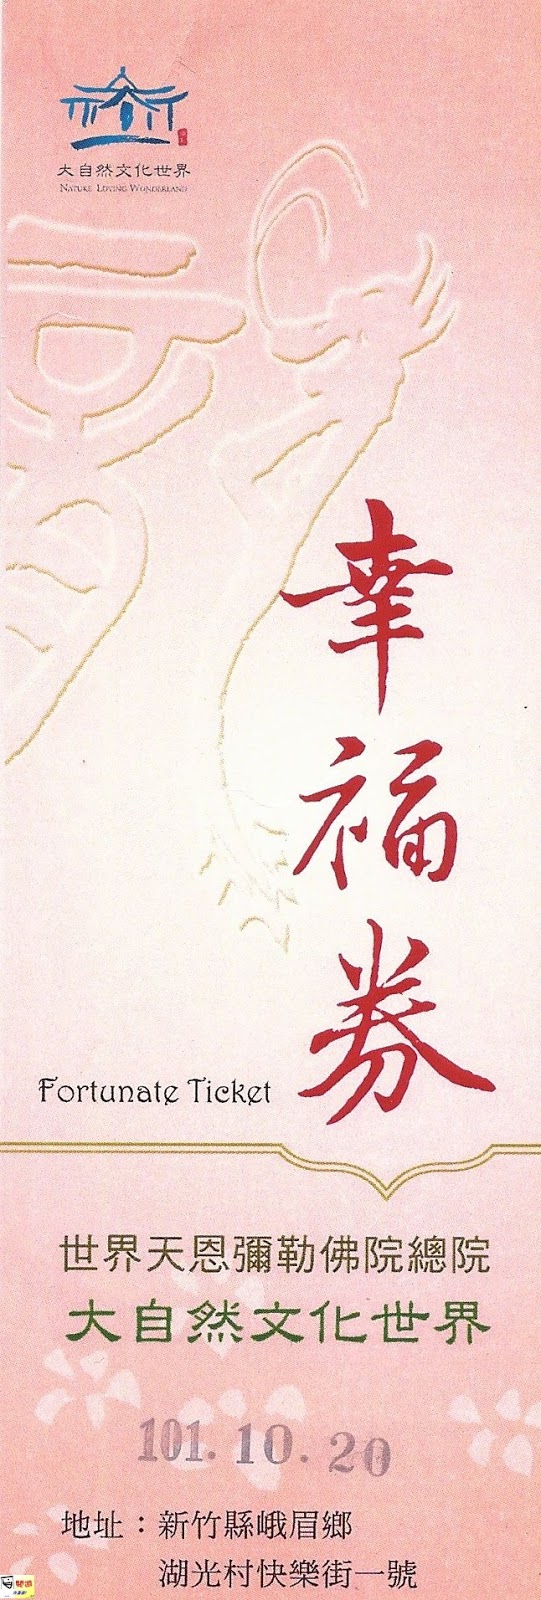 大自然文化世界
NATURE LOVING WONDERLAND
幸福券
Fortunate Ticket
世界天恩彌勒佛院總院
大自然文化世界
101.10.20
地址：新竹縣峨眉鄉
湖光村快樂街一號